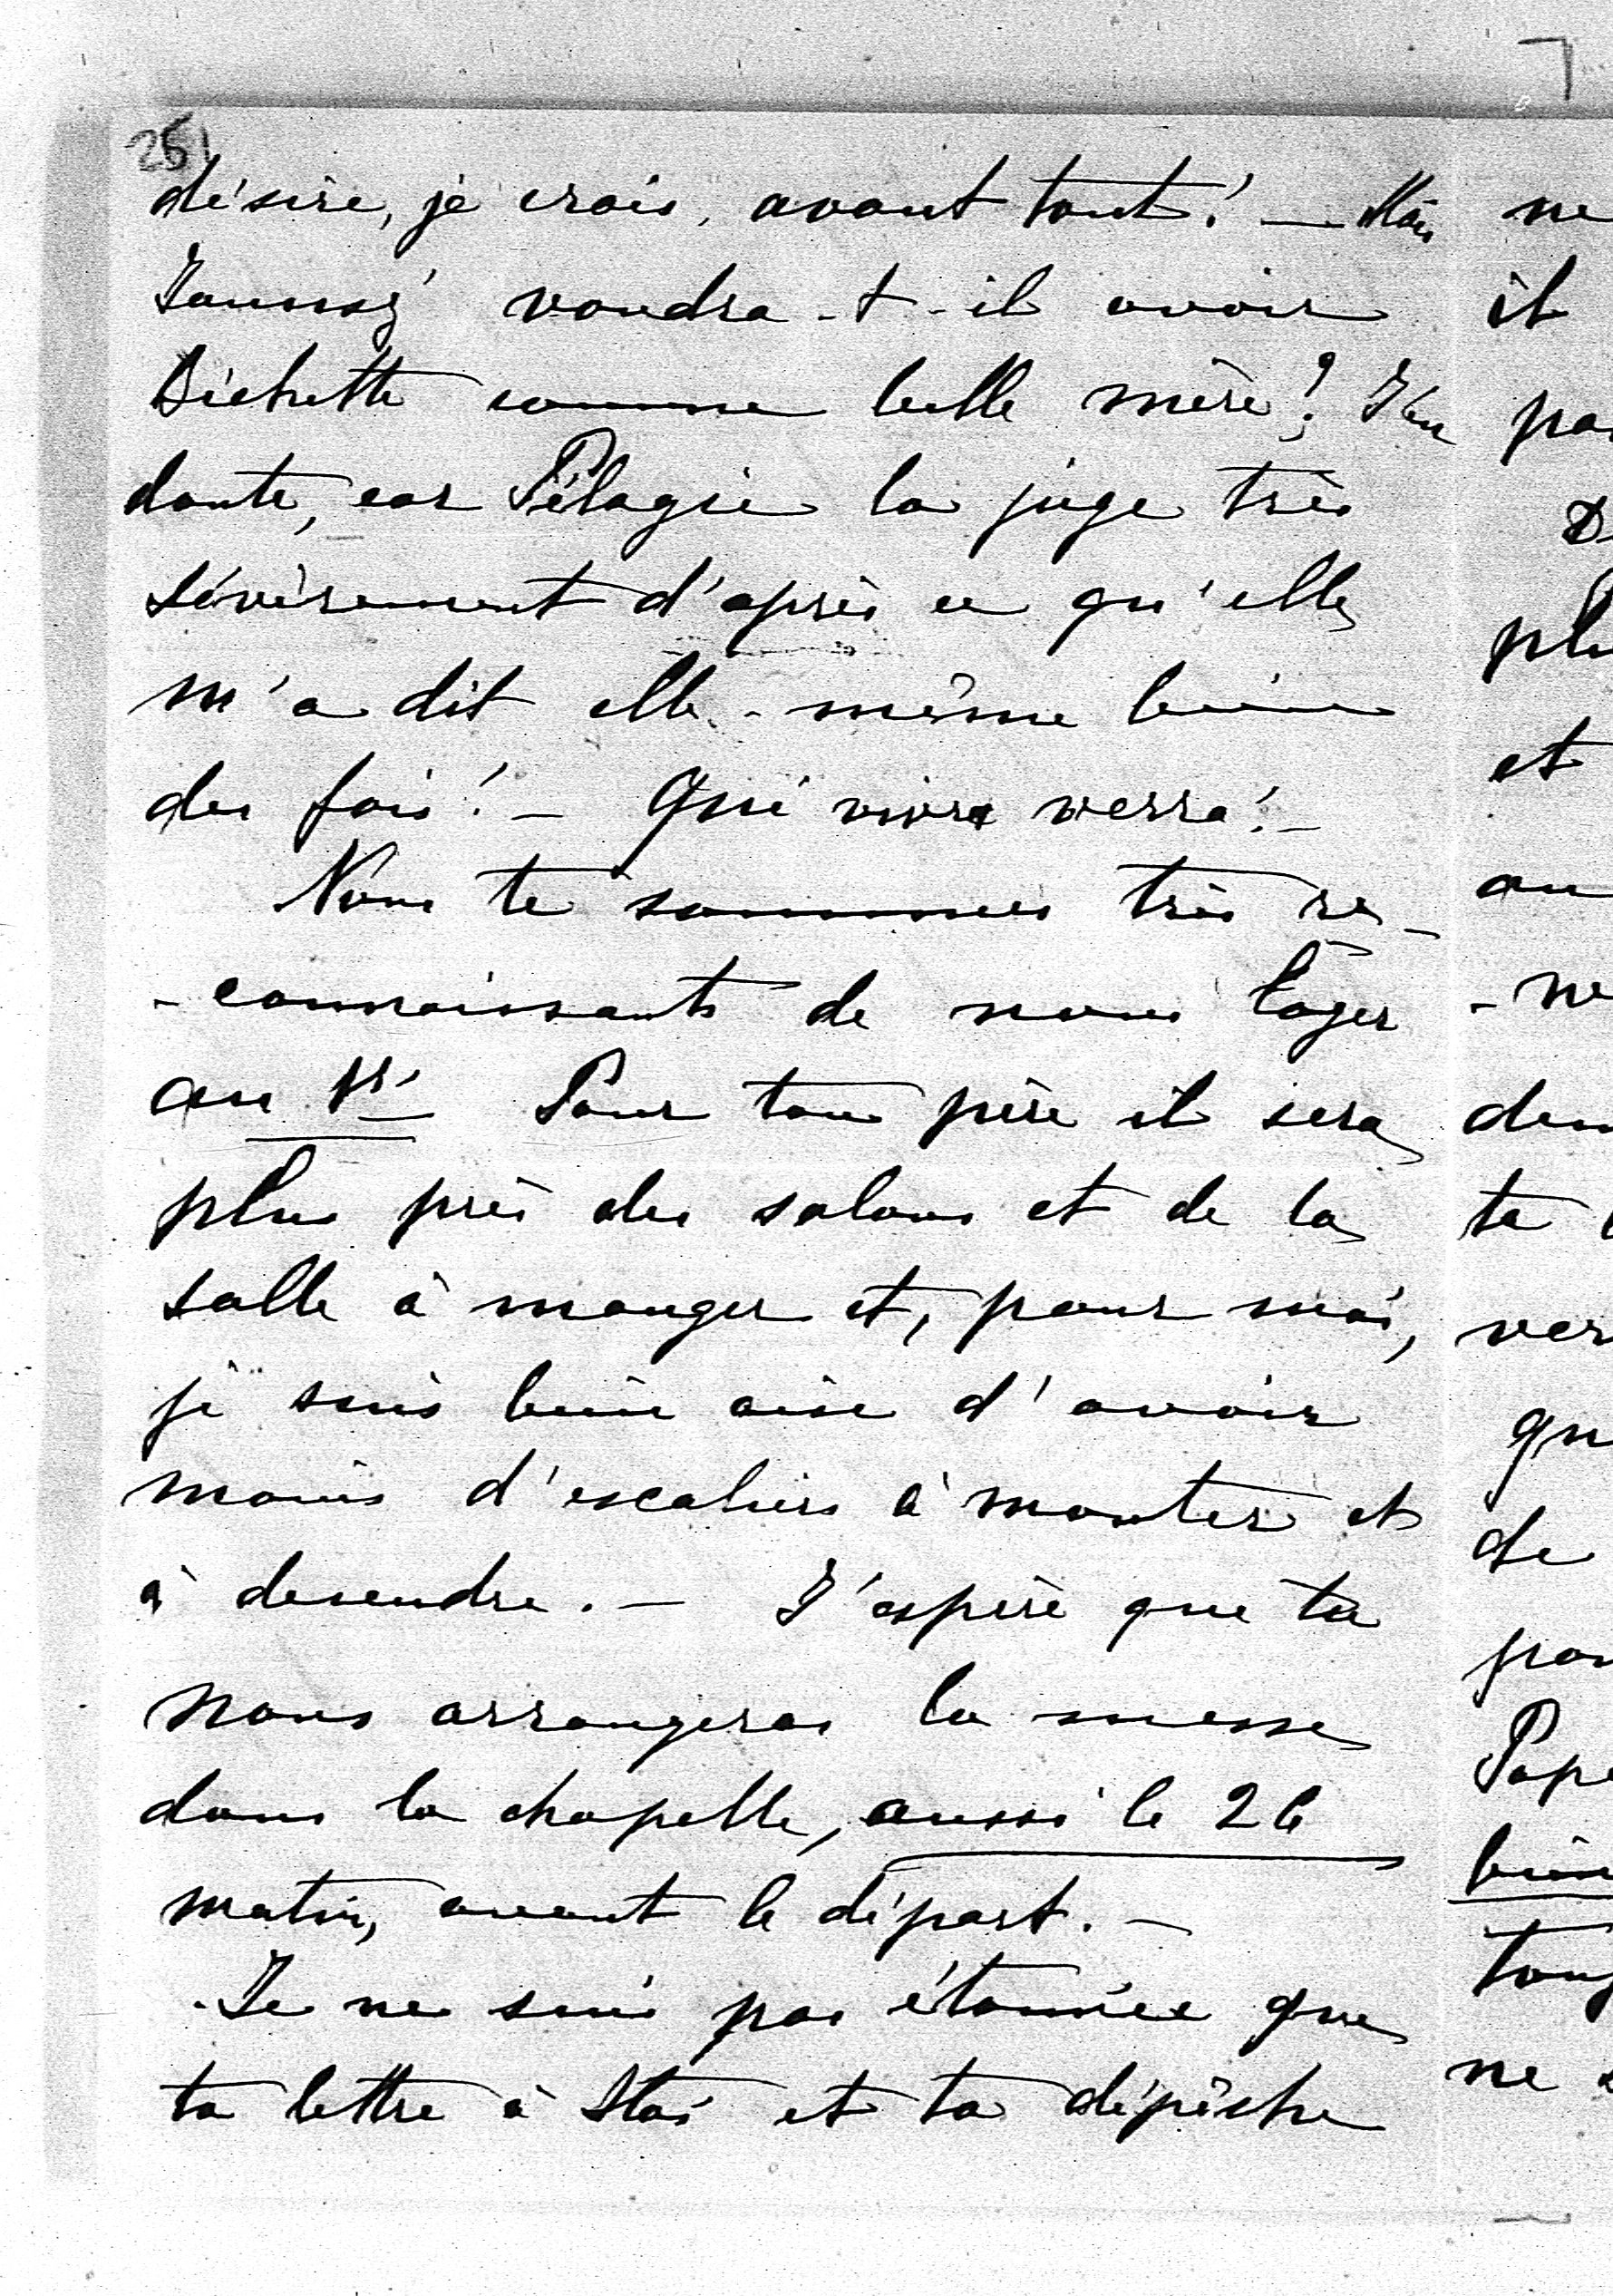 251
désire, je crois, avant tout! — Mais
voudra-t-il avoir
Bichette comme belle mère? J'en
doute, car Pélagie la juge très
sévèrement d'après ce qu'elle
m'a dit elle-même bien
des fois! — Qui vivra verra! —
Nous te sommes très re-
-connaissants de nous loger
au Pour ton père il sera
plus près des salons et de la
salle à manger et, pour moi,
je suis bien aise d'avoir
moins d'escaliers à monter et
à descendre. — J'espère que tu
nous arrangeras la messe
dans la chapelle, aussi le 26
matin, avant le départ. —
Je ne suis pas étonnée que
ta lettre à Stas et ta dépêche
ne
il
pas
plu
et
au
- ne
ta
ver
qu
de
pou
Pape
bien
touj
ne